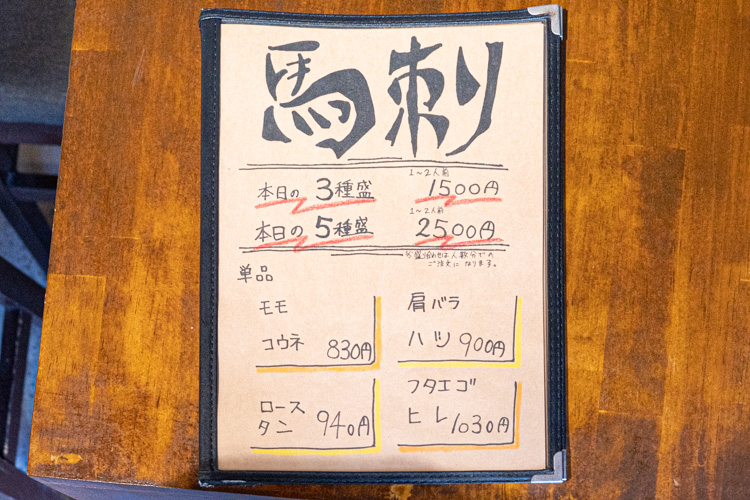 馬刺
1〜2人前
本日の 3種盛 1500円
1〜2人前
本日の 5種盛 2500円
ご注文になります。
単品
モモ
コウネ 830円
肩バラ
ハツ 900円
ロース
タン 940円
フタエゴ
ヒレ 1030円